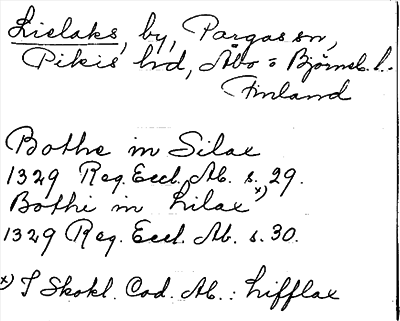 Lielaks, by, Pargas sn,
Pikis hd, Åbo o Björneb. l.
Finland
Bothe in Silax
1329 Reg. Eccl. Ab. s. 29.
Bothi in Lilax x)
1329 Reg. Eccl. Ab. s. 30.
x) I Skokl. Cod. Ab.: Lifflax